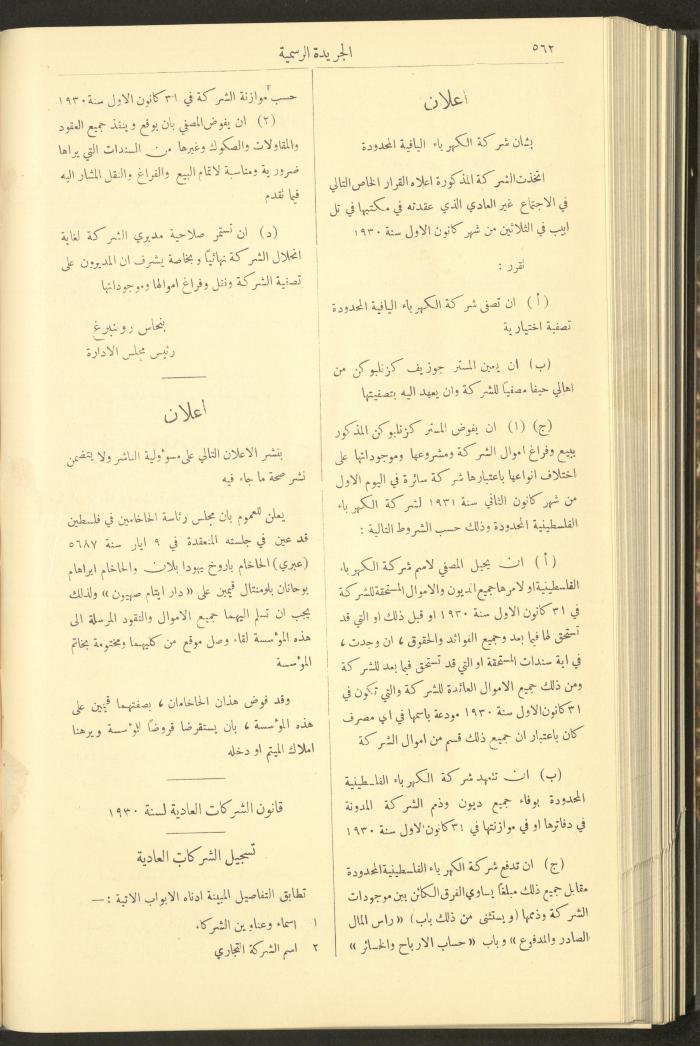 ٥٦٢
الجريدة الرسمية
اعلان
بشان شركة الكهرباء اليافية المحدودة
اتخذت الشركة المذكورة اعلاه القرار الخاص التالي
في الاجتماع غير العادي الذي عقدته في مكتبها في تل
ابيب في الثلاثين من شهر كانون الاول سنة ١٩٣٠
تقرر :
(أ) ان تصفى شركة الكهرباء اليافية المحدودة
تصفية اختيارية
(ب) ان يعين المستر جوزيف كزنلبوكن من
اهالي حيفا مصفيًا للشركة وان يعهد اليه بتصفيتها
(ج) (١) ان يفوض المستر كزنلبوكن المذكور
ببيع وفراغ اموال الشركة ومشروعها وموجوداتها على
اختلاف انواعها باعتبارها شركة سائرة في اليوم الاول
من شهر كانون الثاني سنة ١٩٣١ لشركة الكهرباء
الفلسطينية المحدودة وذلك حسب الشروط التالية :
(أ) ان يحيل المصفي لاسم شركة الكهرباء
الفلسطينية او لامرها جميع الديون والاموال المستحقة للشركة
في ٣١ كانون الاول سنة ١٩٣٠ او قبل ذلك او التي قد
تستحق لها فيما بعد وجميع الفوائد والحقوق ، ان وجدت ،
في اية سندات المستحقة او التي قد تستحق فيما بعد للشركة
ومن ذلك جميع الاموال العائدة للشركة والتي تكون في
٣١ كانون الاول سنة ١٩٣٠ مودعة باسمها في اي مصرف
كان باعتبار ان جميع ذلك قسم من اموال الشركة
(ب) ان تتعهد شركة الكهرباء الفلسطينية
المحدودة بوفاء جميع ديون وذمم الشركة المدونة
في دفاترها او في موازنتها في ٣١ كانون الاول سنة ١٩٣٠
(ج) ان تدفع شركة الكهرباء الفلسطينية المحدودة
مقابل جميع ذلك مبلغًا يساوي الفرق الكائن بين موجودات
الشركة وذممها (ويستثنى من ذلك باب) « راس المال
الصادر والمدفوع » وباب « حساب الارباح والخسائر »
حسب موازنة الشركة في ٣١ كانون الاول سنة ١٩٣٠
(٢) ان يفوض المصفي بان يوقع وينفذ جميع العقود
والمقاولات والصكوك وغيرها من السندات التي يراها
ضرورية ومناسبة لاتمام البيع والفراغ والنقل المشار اليه
فيما تقدم
(د) ان تستمر صلاحية مديري الشركة لغاية
انحلال الشركة نهائيًا وبخاصة يشرف ان المديرون على
تصفية الشركة ونقل وفراغ اموالها وموجوداتها
بنحاس روتنبرغ
رئيس مجلس الادارة
اعلان
ينشر الاعلان التالي على مسؤولية الناشر ولا يتضمن
نشر صحة ما جاء فيه
يعلن للعموم بان مجلس رئاسة الحاخامين في فلسطين
قد عين في جلسته المنعقدة في ٩ ايار سنة ٥٦٨٧
(عبري) الحاخام باروخ يهودا بلان والحاخام ابراهام
يوحانان بلومنتال قيمين على « دار ايتام صهيون » ولذلك
يجب ان تسلم اليهما جميع الاموال والنقود المرسلة الى
هذه المؤسسة لقاء وصل موقع من كليهما ومختومة بخاتم
المؤسسة
وقد فوض هذان الحاخامان ، بصفتهما قيمين على
هذه المؤسسة ، بان يستقرضا قروضًا للمؤسسة ويرهنا
املاك الميتم او دخله
قانون الشركات العادية لسنة ١٩٣٠
تسجيل الشركات العادية
تطابق التفاصيل المبينة ادناه الابواب الاتية :—
١ اسماء وعناوين الشركاء
٢ اسم الشركة التجاري